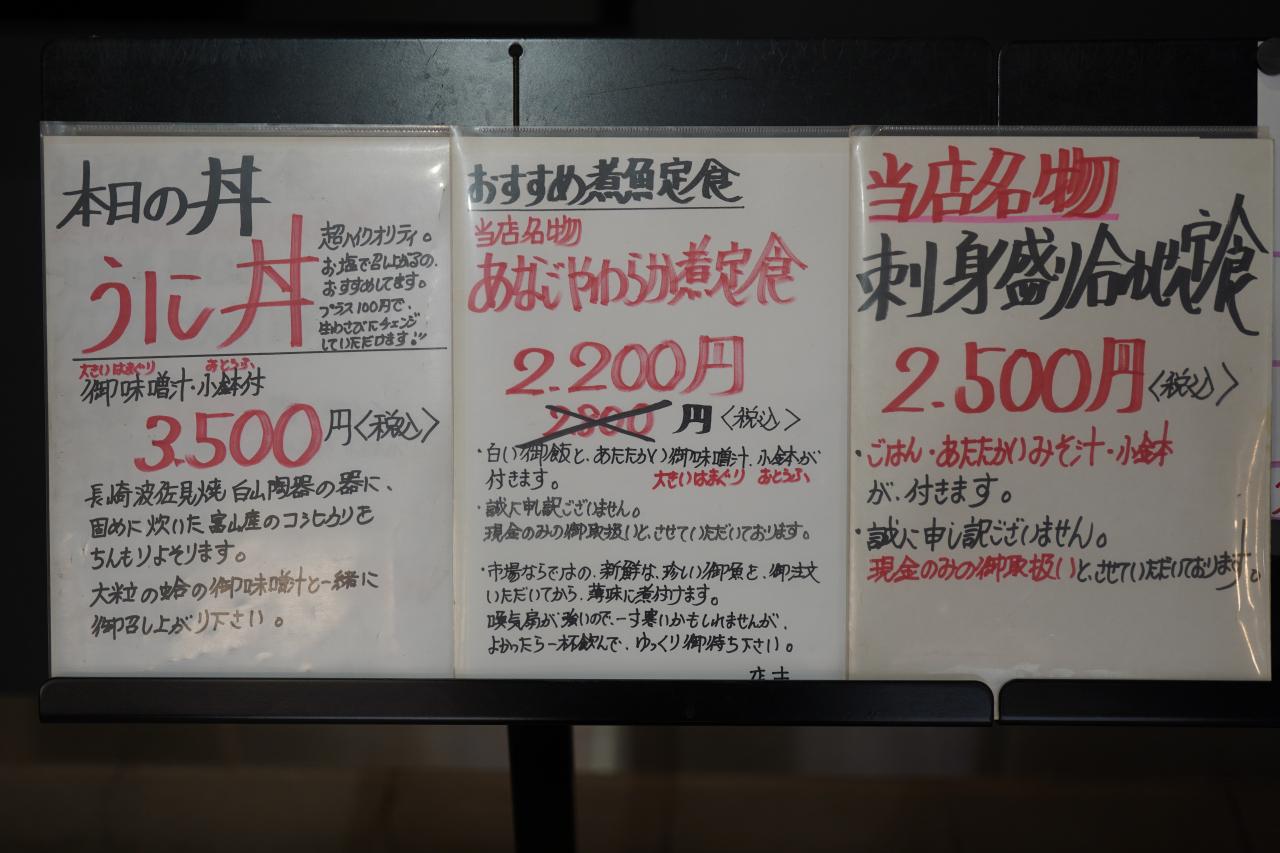 本日の丼
うに丼
超ハイクオリティ。
お塩で召し上がるの、
おすすめしてます。
プラス100円で、
生わさびにチェンジ
していただけます!!
大きいはまぐり おとうふ
御味噌汁・小鉢付
3.500円〈税込〉
長崎波佐見焼 白山陶器の器に、
固めに炊いた富山産のコシヒカリを
ちんもりよそります。
大粒の蛤の御味噌汁と一緒に
御召し上がり下さい。
おすすめ煮魚定食
当店名物
あなごやわらか煮定食
2.200円
2.800円〈税込〉
・白い御飯と、あたたかい御味噌汁、小鉢が
付きます。
大きいはまぐり おとうふ
・誠に申し訳ございません。
現金のみの御取扱いと、させていただいております。
・市場ならではの、新鮮な、珍しい御魚を、御注文
いただいてから、薄味に煮付けます。
喚気扇が強いので、一寸寒いかもしれませんが、
よかったら一杯飲んで、ゆっくり御待ち下さい。
店主
当店名物
刺身盛り合わせ定食
2.500円〈税込〉
・ごはん・あたたかいみそ汁・小鉢
が、付きます。
・誠に申し訳ございません。
現金のみの御取扱いと、させていただいております。